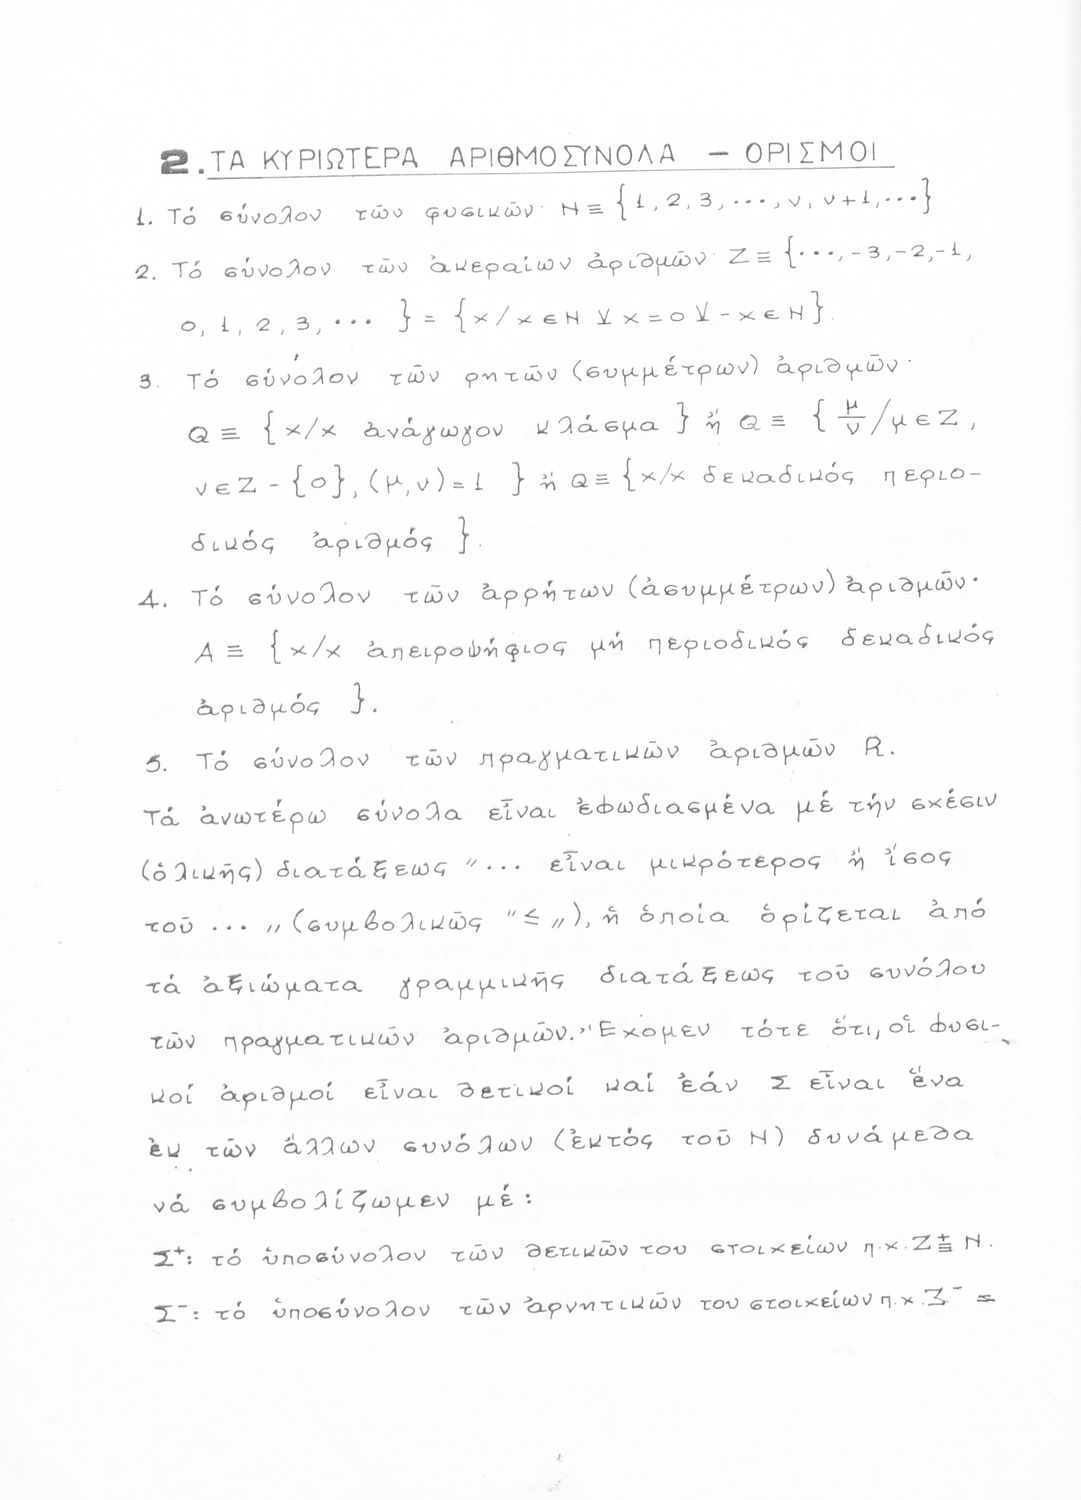 2. ΤΑ ΚΥΡΙΩΤΕΡΑ ΑΡΙΘΜΟΣΥΝΟΛΑ – ΟΡΙΣΜΟΙ
1. Τό σύνολον τῶν φυσικῶν· Ν ≡ {1, 2, 3, ..., ν, ν+1, ...}
2. Τό σύνολον τῶν ἀκεραίων ἀριθμῶν· Ζ ≡ {..., -3, -2, -1,
0, 1, 2, 3, ... } = {x/x ∈ Ν ⊻ x=0 ⊻ -x ∈ Ν}.
3. Τό σύνολον τῶν ρητῶν (συμμέτρων) ἀριθμῶν·
Q ≡ {x/x ἀνάγωγον κλάσμα } ἤ Q ≡ { μ/ν /μ ∈ Ζ,
ν ∈ Ζ - {0}, (μ,ν)=1 } ἤ Q ≡ {x/x δεκαδικός περιο-
δικός ἀριθμός }.
4. Τό σύνολον τῶν ἀρρήτων (ἀσυμμέτρων) ἀριθμῶν·
Α ≡ {x/x ἀπειροψήφιος μή περιοδικός δεκαδικός
ἀριθμός }.
5. Τό σύνολον τῶν πραγματικῶν ἀριθμῶν R.
Τά ἀνωτέρω σύνολα εἶναι ἐφωδιασμένα μέ τήν σχέσιν
(ὁλικῆς) διατάξεως "... εἶναι μικρότερος ἤ ἴσος
τοῦ ... „ (συμβολικῶς "≤„), ἡ ὁποία ὁρίζεται ἀπό
τά ἀξιώματα γραμμικῆς διατάξεως τοῦ συνόλου
τῶν πραγματικῶν ἀριθμῶν. Ἔχομεν τότε ὅτι, οἱ φυσι-
κοί ἀριθμοί εἶναι θετικοί καί ἐάν Σ εἶναι ἕνα
ἐκ τῶν ἄλλων συνόλων (ἐκτός τοῦ Ν) δυνάμεθα
νά συμβολίζωμεν μέ:
Σ⁺: τό ὑποσύνολον τῶν θετικῶν του στοιχείων π.χ. Ζ⁺ ≡ Ν.
Σ⁻: τό ὑποσύνολον τῶν ἀρνητικῶν του στοιχείων π.χ. Ζ⁻ =